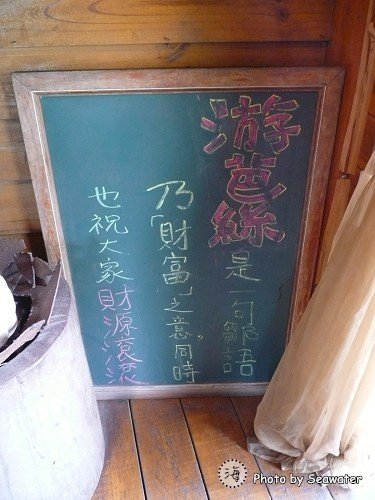 游芭絲是一句鄒語
乃「財富」之意。同時
也祝大家財源滾滾
海
Photo by Seawater